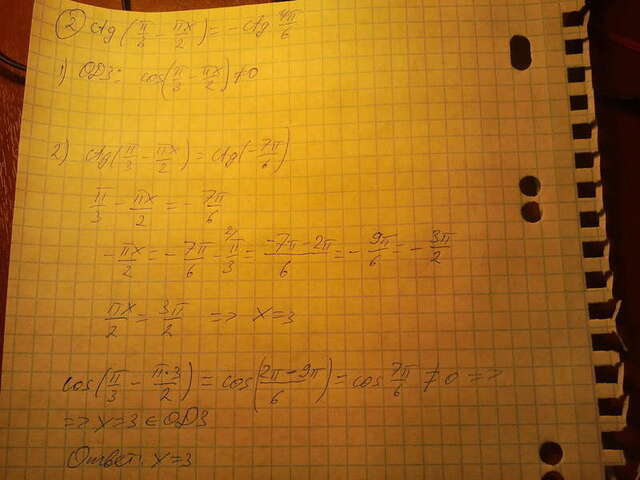 ② ctg(π/3 - πx/2) = -ctg 7π/6
1) ОДЗ: cos(π/3 - πx/2) ≠ 0
2) ctg(π/3 - πx/2) = ctg(-7π/6)
π/3 - πx/2 = -7π/6
-πx/2 = -7π/6 - ²⁄π/3 = (-7π - 2π)/6 = -9π/6 = -3π/2
πx/2 = 3π/2 => x=3
cos(π/3 - π·3/2) = cos((2π - 9π)/6) = cos 7π/6 ≠ 0 =>
=> x=3 ∈ ОДЗ
Ответ: x=3